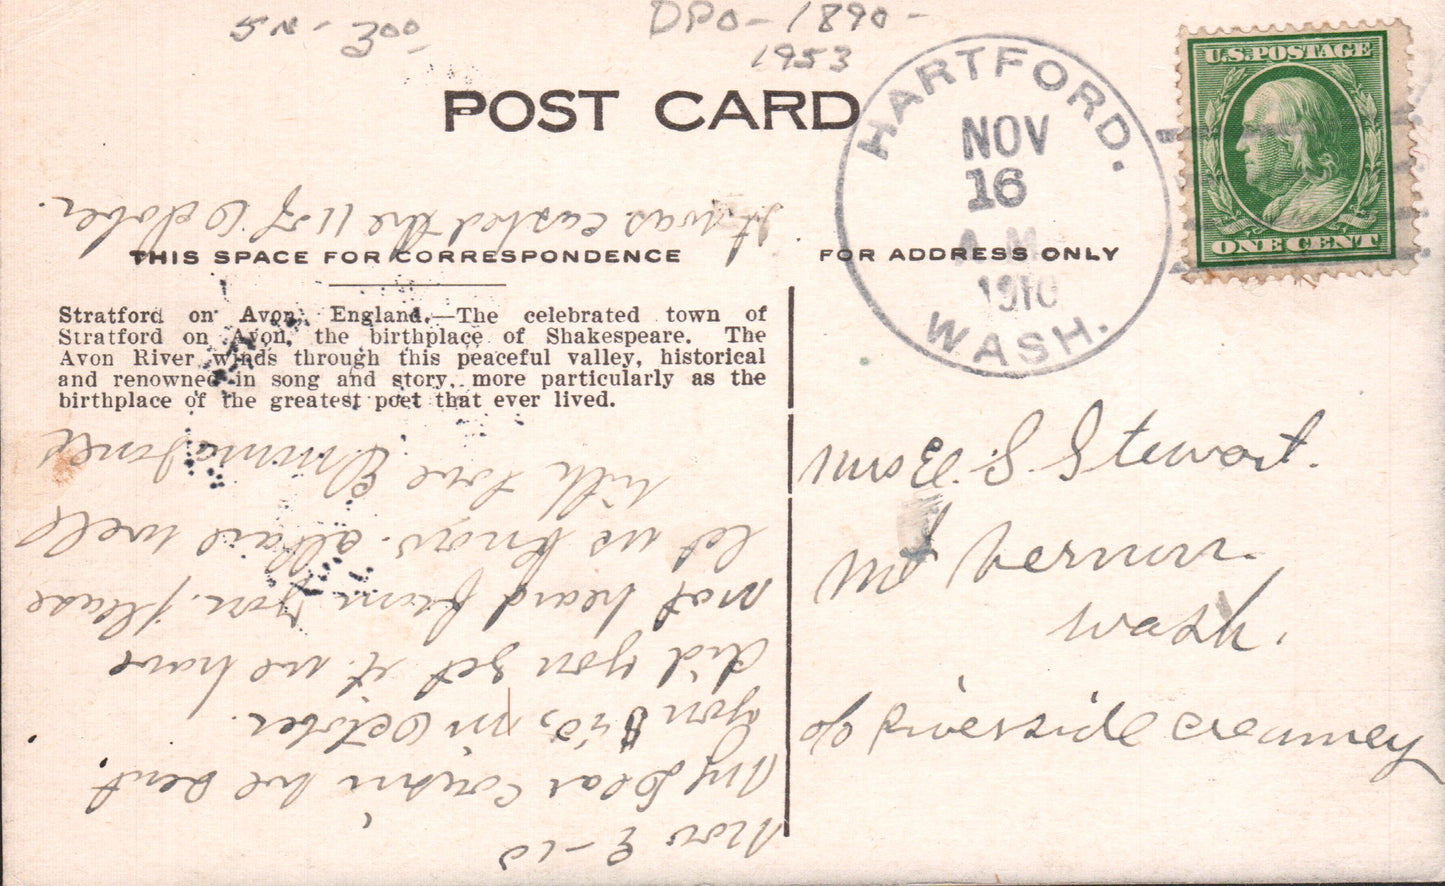 5N - 3.00
DPO - 1890 -
1953
POST CARD
HARTFORD.
NOV
16
A.M.
1910
WASH.
U.S. POSTAGE
ONE CENT
THIS SPACE FOR CORRESPONDENCE
FOR ADDRESS ONLY
Stratford on Avon, England.—The celebrated town of
Stratford on Avon, the birthplace of Shakespeare. The
Avon River winds through this peaceful valley, historical
and renowned in song and story, more particularly as the
birthplace of the greatest poet that ever lived.
Nov
My Dear Cousin we sent
you in October.
did you get it we have
not heard from you. please
let us know. all are well
with love Jones
it was cashed the 11 of October.
Mrs E. S. Stewart.
Mt Vernon.
Wash.
c/o Riverside Creamey